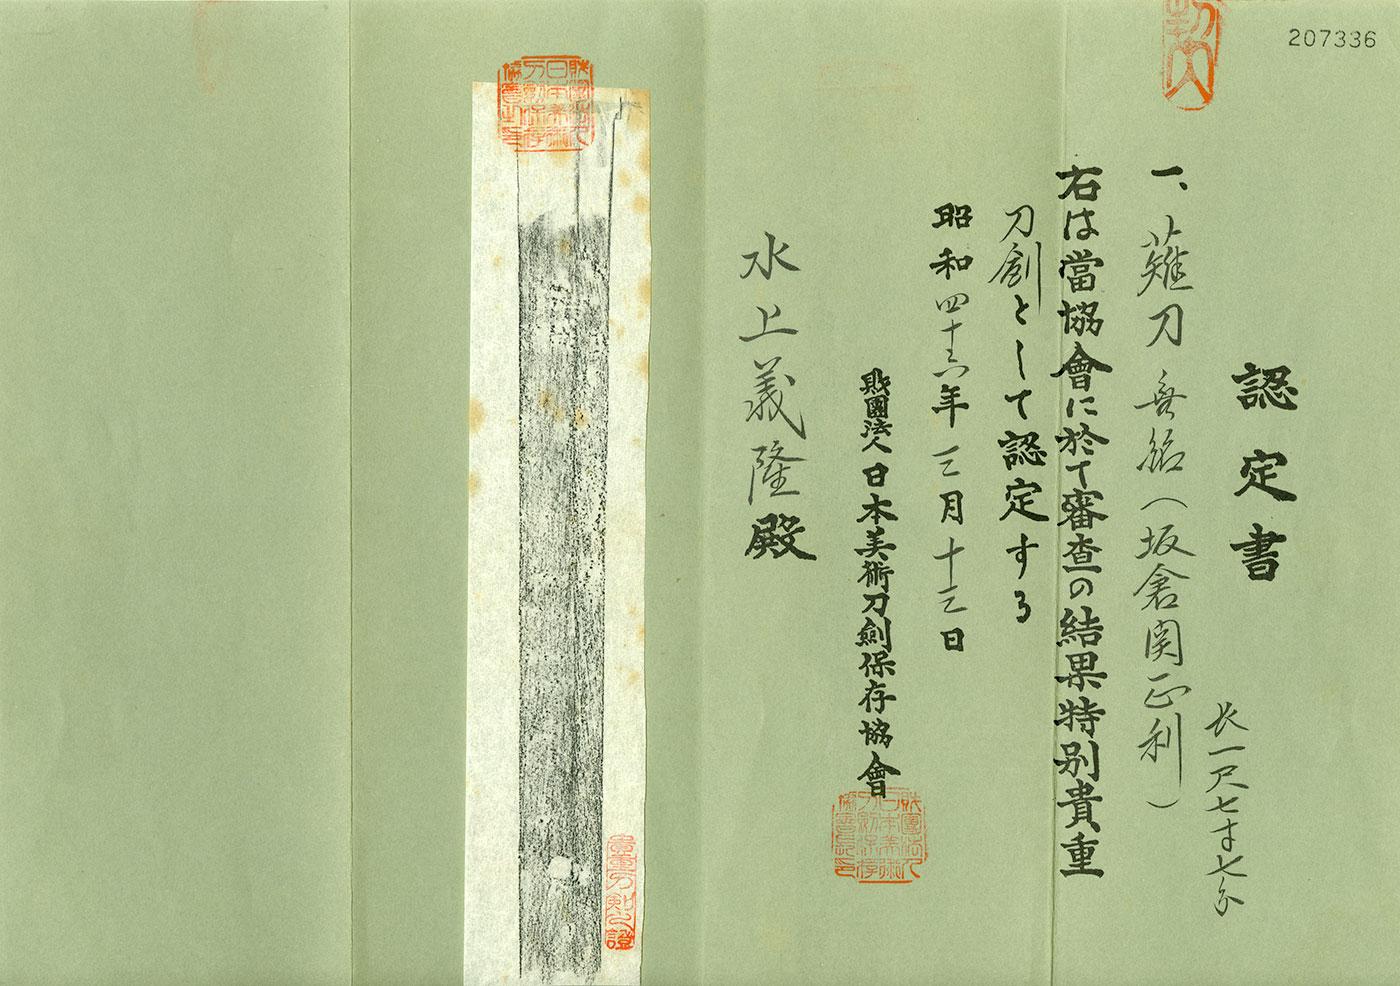 207336
認定書
長一尺七寸七分
一、薙刀 無銘(坂倉関正利)
右は當協會に於て審査の結果特別貴重
刀劍として認定する
昭和四十六年三月十三日
財團法人日本美術刀劍保存協會
水上義隆殿
財團法人日本美術刀劍保存協會之印
貴重刀剣之證